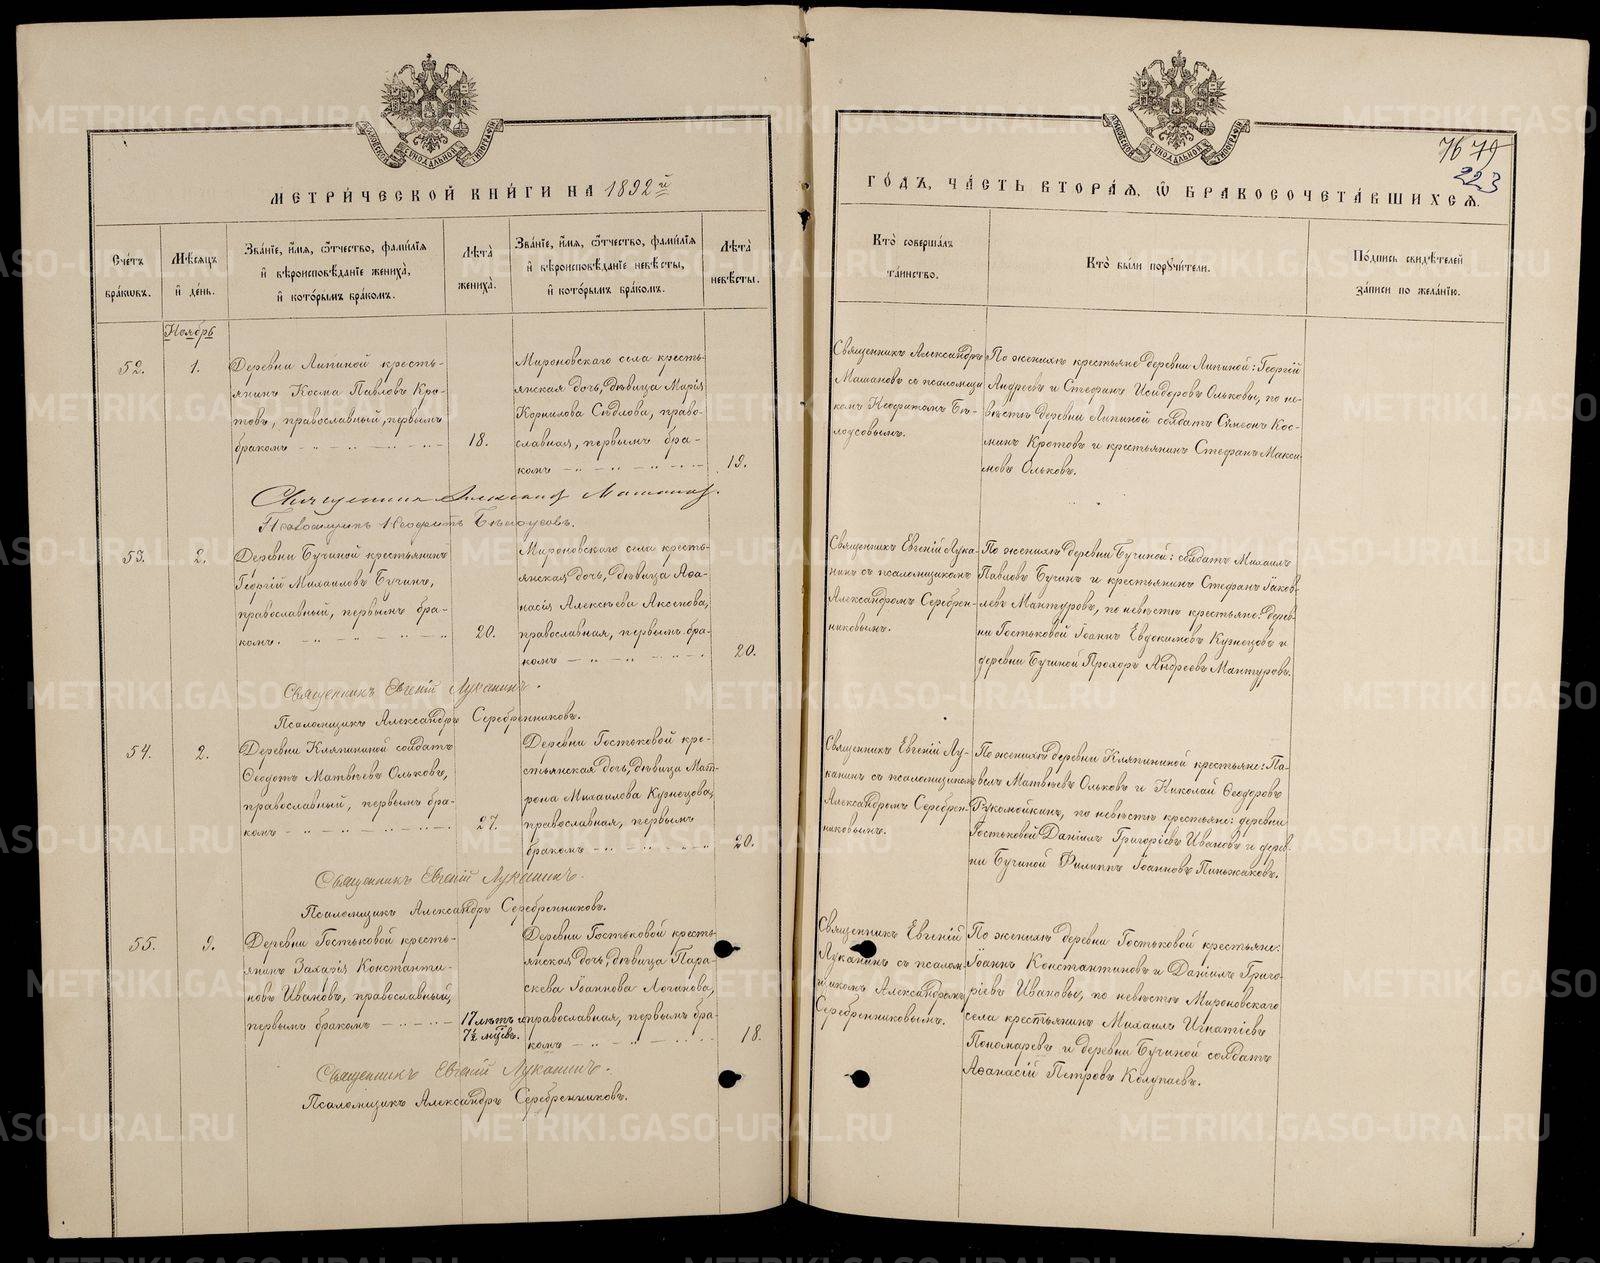 МЕТРИ́ЧЕСКОЙ КНИ́ГИ НА 1892 й
Сче́тъ бра́кѡвъ.
Мѣ́сяцъ и҆ де́нь.
Зва́нїе, и҆́мя, ѻ҆́тчество, фами́лїя
и҆ вѣроисповѣ́данїе жениха̀,
и҆ кото́рымъ бра́комъ.
Лѣ́та жениха̀.
Зва́нїе, и҆́мя, ѻ҆́тчество, фами́лїя
и҆ вѣроисповѣ́данїе невѣ́сты,
и҆ кото́рымъ бра́комъ.
Лѣ́та невѣ́сты.
Ноябрь
52.
1.
Деревни Липиной кресть-
янинъ Косма Павловъ Кро-
товъ, православный, первымъ
бракомъ
18.
Мироновскаго села кресть-
янская дочь, дѣвица Марія
Корнилова Сѣдлова, право-
славная, первымъ бра-
комъ
19.
Священникъ Александръ Машановъ.
Псаломщикъ Неофитъ Бѣлоусовъ.
53.
2.
Деревни Бучиной крестьянинъ
Георгій Михаиловъ Бучинъ,
православный, первымъ бра-
комъ.
20.
Мироновскаго села кресть-
янская дочь, дѣвица Аѳа-
насія Алексѣева Аксенова,
православная, первымъ бра-
комъ
20.
Священникъ Евгеній Луканинъ.
Псаломщикъ Александръ Серебренниковъ.
54.
2.
Деревни Кляпининой солдатъ
Ѳеодотъ Матвѣевъ Ольковъ,
православный, первымъ бра-
комъ
27.
Деревни Гостьковой кре-
стьянская дочь, дѣвица Мат-
рона Михаилова Кузнецова,
православная, первымъ
бракомъ
20.
Священникъ Евгеній Луканинъ.
Псаломщикъ Александръ Серебренниковъ.
55.
9.
Деревни Гостьковой кресть-
янинъ Захарія Константи-
новъ Ивановъ, православный,
первымъ бракомъ
17 лѣтъ и
7½ мцѣвъ.
Деревни Гостьковой кресть-
янская дочь, дѣвица Пара-
скева Іоаннова Логинова,
православная, первымъ бра-
комъ
18.
Священникъ Евгеній Луканинъ.
Псаломщикъ Александръ Серебренниковъ.
76 79
223
ГО́ДЪ, ЧА́СТЬ ВТОРА́Я, Ѡ҆ БРАКОСОЧЕТА́ВШИХСЯ.
Кто̀ соверша́лъ
та́инство.
Кто̀ бы́ли порꙋчи́тели.
По́дпись свидѣ́телей
за́писи по жела́нїю.
Священникъ Александръ
Машановъ съ псаломщи
комъ Неофитомъ Бѣ-
лоусовымъ.
По женихѣ крестьяне деревни Липиной: Георгій
Андреевъ и Стефанъ Исидоровъ Ольковы, по не-
вѣстѣ деревни Липиной солдатъ Сѵмеонъ Кос-
минъ Кротовъ и крестьянинъ Стефанъ Макси-
мовъ Ольковъ.
Священникъ Евгеній Лука-
нинъ съ псаломщикомъ
Александромъ Серебрен-
никовымъ.
По женихѣ деревни Бучиной: солдатъ Михаилъ
Павловъ Бучинъ и крестьянинъ Стефанъ Іаков-
левъ Мантуровъ, по невѣстѣ крестьяне: дерев-
ни Гостьковой Іоаннъ Евдокимовъ Кузнецовъ и
деревни Бучиной Прохоръ Андреевъ Мантуровъ.
Священникъ Евгеній Лу-
канинъ съ псаломщикомъ
Александромъ Серебрен-
никовымъ.
По женихѣ деревни Кляпининой крестьяне: Па-
велъ Матвѣевъ Ольковъ и Николай Ѳеодоровъ
Рукомойкинъ, по невѣстѣ крестьяне: деревни
Гостьковой Даніилъ Григорьевъ Ивановъ и дерев-
ни Бучиной Филиппъ Іоанновъ Пиньжаковъ.
Священникъ Евгеній
Луканинъ съ псалом-
щикомъ Александромъ
Серебренниковымъ.
По женихѣ деревни Гостьковой крестьяне:
Іоаннъ Константиновъ и Даніилъ Григо-
ріевъ Ивановы, по невѣстѣ Мироновскаго
села крестьянинъ Михаилъ Игнатіевъ
Пономаревъ и деревни Бучиной солдатъ
Аѳанасій Петровъ Колупаевъ.
METRIKI.GASO-URAL.RU